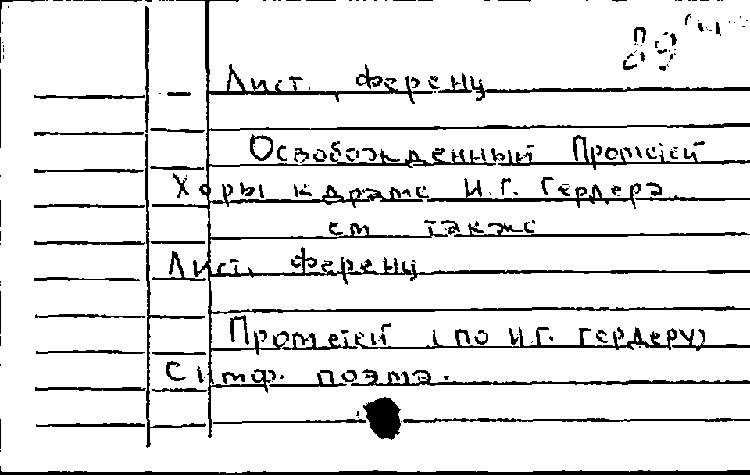 89
Лист, Ференц
Освобожденный Прометей
Хоры к драме И.Г. Гердера
см также
Лист, Ференц
Прометей (по И.Г. Гердеру)
Симф. поэма.